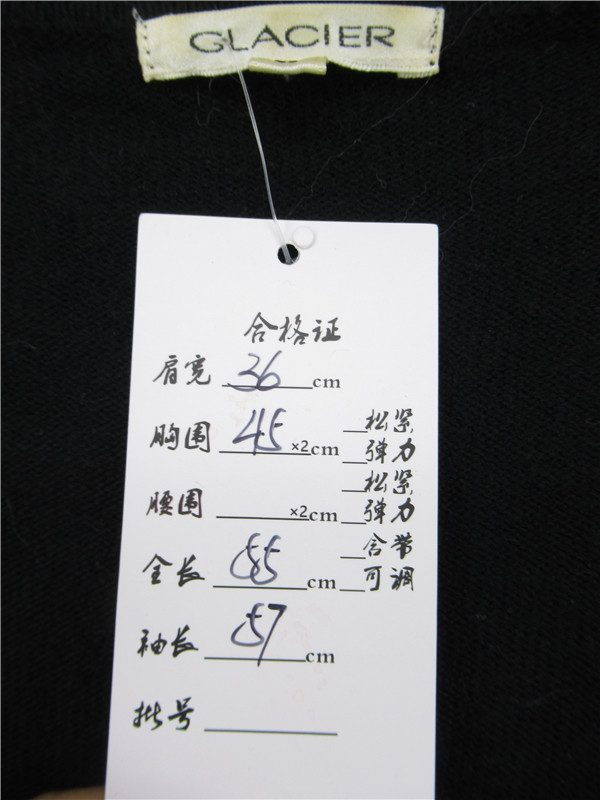 GLACIER
合格证
肩宽 36 cm
胸围 45 ×2cm 松紧
弹力
腰围 ×2cm 松紧
弹力
全长 55 cm 含带
可调
袖长 57 cm
批号